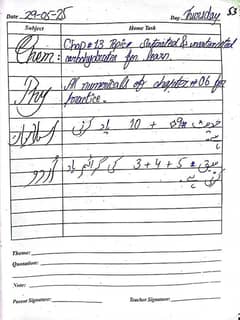 53
Date 29-05-25 Day Thursday
Subject Home Task
Chem: Chap # 13 Topic Saturated & unsaturated
for learn.
Phy All numericals of chapter # 06 for
practice.
اسلامیات حدیث # 9 + 10 یاد کرنی
ہے
اردو سبق # 3 + 4 + 5 کی گرائمر یاد
کرنی ہے۔
Theme:
Quotation:
Note:
Parent Signature: Teacher Signature: